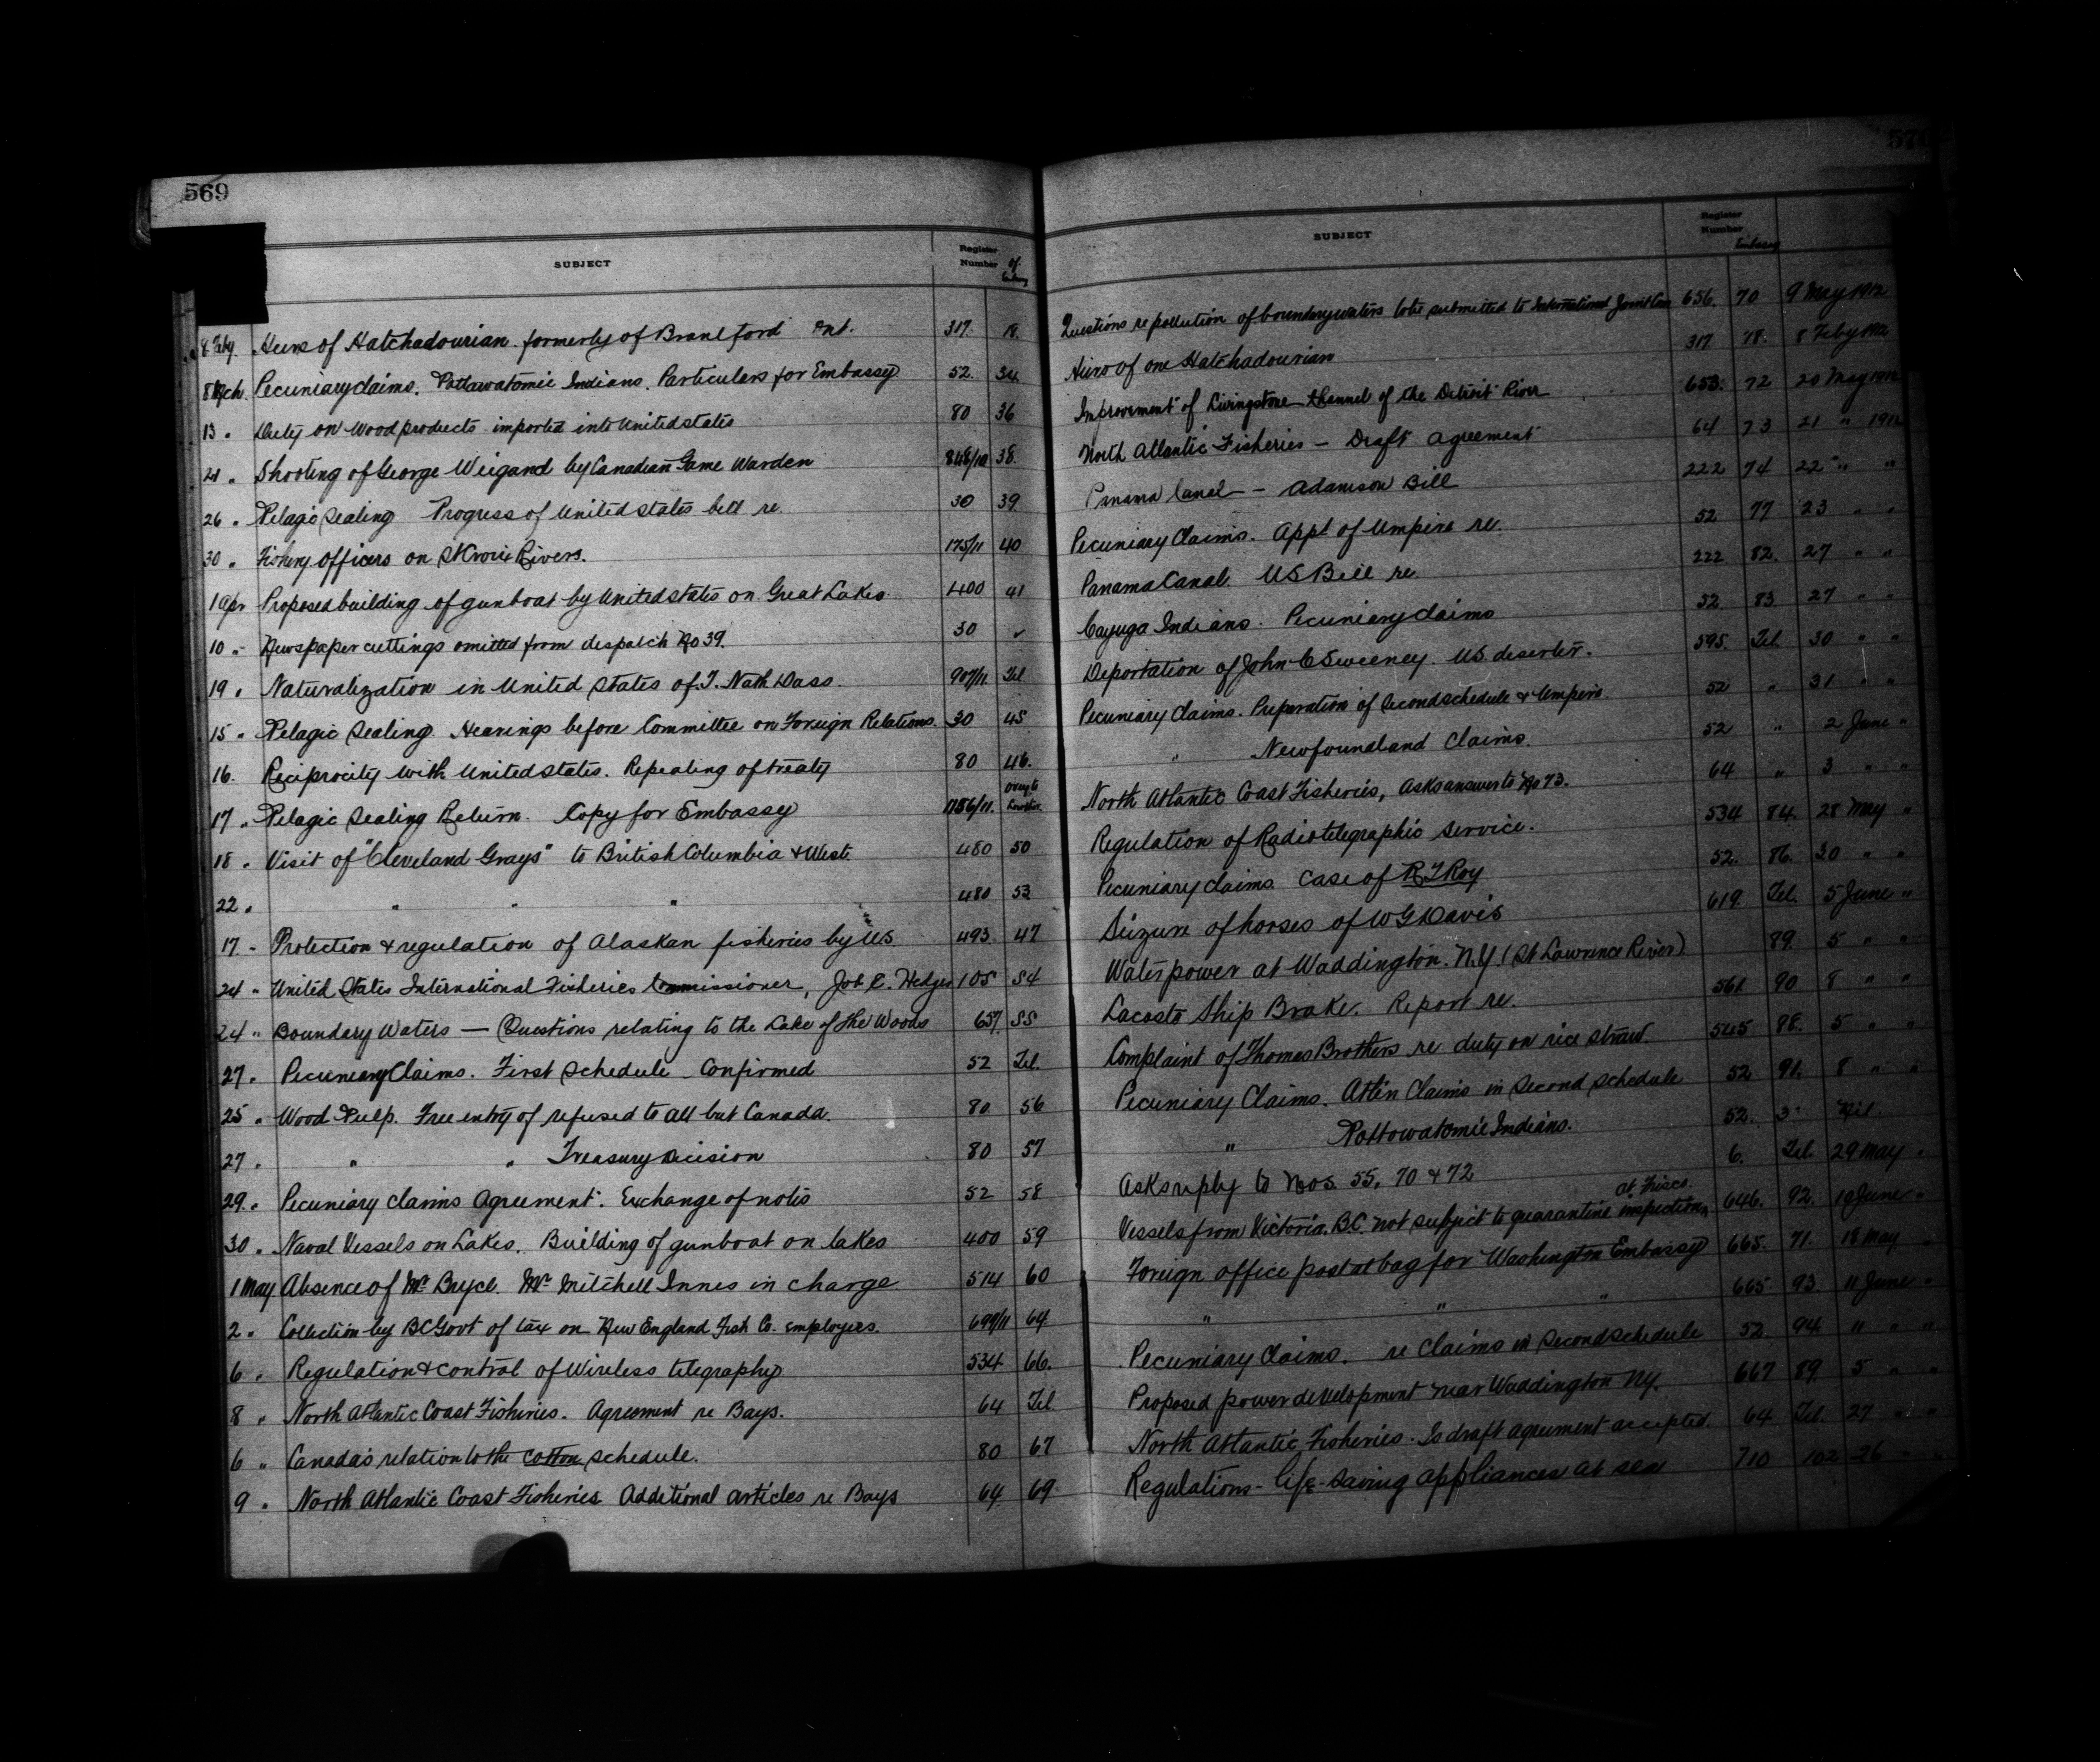 569
SUBJECT Register Number of Embassy
8 Feby. Heirs of Hatchadourian formerly of Brantford Ont. 317 18.
8 Mch. Pecuniary claims. Pottawatomie Indians. Particulars for Embassy 52. 34
13 " Duty on Wood products imported into United States 80 36
21 " Shooting of George Weigand by Canadian Game Warden 848/10 38.
26 " Pelagic Sealing Progress of United States bill re. 30 39
30 " Fishery Officers on St Croix Rivers. 175/11 40
1 Apr Proposed building of gunboat by United States on Great Lakes. 400 41
10 " Newspaper cuttings omitted from despatch No 39. 30 ✓
19 " Naturalization in United States of T. Nath Dass. 907/11 Tel
15 " Pelagic Sealing. Hearings before Committee on Foreign Relations. 30 45
16. Reciprocity with United States. Repealing of treaty 80 46.
17 " Pelagic Sealing Return. Copy for Embassy 1156/11.
18 " Visit of "Cleveland Grays" to British Columbia & West. 480 50
22 " " " " 480 53
17 - Protection & regulation of Alaskan fisheries by U.S. 493 47
24 " United States International Fisheries Commissioner, Job E. Hedges 105 54
24 " Boundary Waters — Questions relating to the Lake of the Woods 657. 55
27 " Pecuniary Claims. First Schedule - Confirmed 52 Tel.
25 " Wood Pulp. Free entry of refused to all but Canada. 80 56
27 " " " Treasury decision 80 57
29. " Pecuniary claims Agreement. Exchange of notes 52 58
30 " Naval Vessels on Lakes. Building of gunboat on lakes 400 59
1 May Absence of Mr Bryce. Mr Mitchell Innes in charge 514 60
2 " Collection by BC Govt of tax on New England Fish Co. employees. 699/11 64
6 " Regulation & control of Wireless telegraphy 534 66.
8 " North Atlantic Coast Fisheries. Agreement re Bays. 64 Tel.
6 " Canada's relation to the cotton schedule. 80 67
9 " North Atlantic Coast Fisheries Additional articles re Bays 64 69
570
SUBJECT Register Number Embassy
Questions re pollution of boundary waters to be submitted to International Joint Com 656. 70 9 May 1912
Heirs of one Hatchadourian 317 18. 8 Feby 1912
Improvement of Livingstone Channel of the Detroit River 653. 72 20 May 1912
North Atlantic Fisheries - Draft agreement 64 73 21 " 1912
Panama Canal - Adamson Bill 222 74 22 " "
Pecuniary Claims. Appt of Umpire re. 52 77 23 " "
Panama Canal. US Bill re. 222 82. 27 " "
Cayuga Indians. Pecuniary claims 52 83 27 " "
Deportation of John C Sweeney. U.S. deserter. 595. Tel. 30 " "
Pecuniary Claims. Preparation of Second schedule & Umpire. 52 " 31 " "
" Newfoundland Claims. 52 " 2 June "
North Atlantic Coast Fisheries, Asks answer to No 73. 64 " 3 " "
Regulation of Radiotelegraphic service. 534 84. 28 May "
Pecuniary claims. Case of R T Roy 52. 86. 30 " "
Seizure of horses of W G Davis 619. Tel. 5 June "
Waterpower at Waddington. N.Y. (St Lawrence River) 89. 5 " "
Lacoste Ship Brake. Report re. 561 90 8 " "
Complaint of Thomas Brothers re duty on rice straw. 545 88. 5 " "
Pecuniary Claims. Atlin Claims in Second schedule 52 91. 8 " "
" Pottowatomie Indians. 52. 3
Asks reply to Nos. 55, 70 & 72 6. Tel 29 May "
Vessels from Victoria, B.C. not subject to quarantine inspection at Frisco. 646. 92. 10 June "
Foreign office postal bag for Washington Embassy 665. 71. 18 May
" " " 665. 93. 11 June "
Pecuniary Claims. re Claims in Second schedule 52. 94 11 " "
Proposed power development near Waddington N.Y. 667 89. 5 " "
North Atlantic Fisheries. Is draft agreement accepted. 64 Tel. 27 " "
Regulations - life-saving appliances at sea 710 102 26 " "